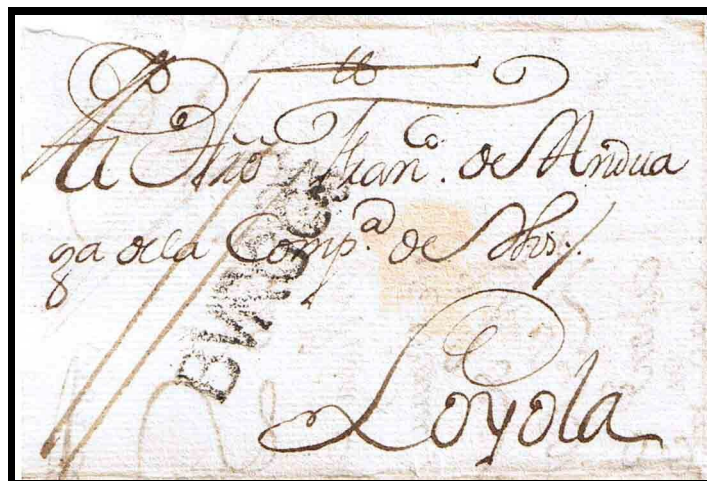 Al Hño Franco. de Andua
ga de la Compa. de Jhs.
Loyola